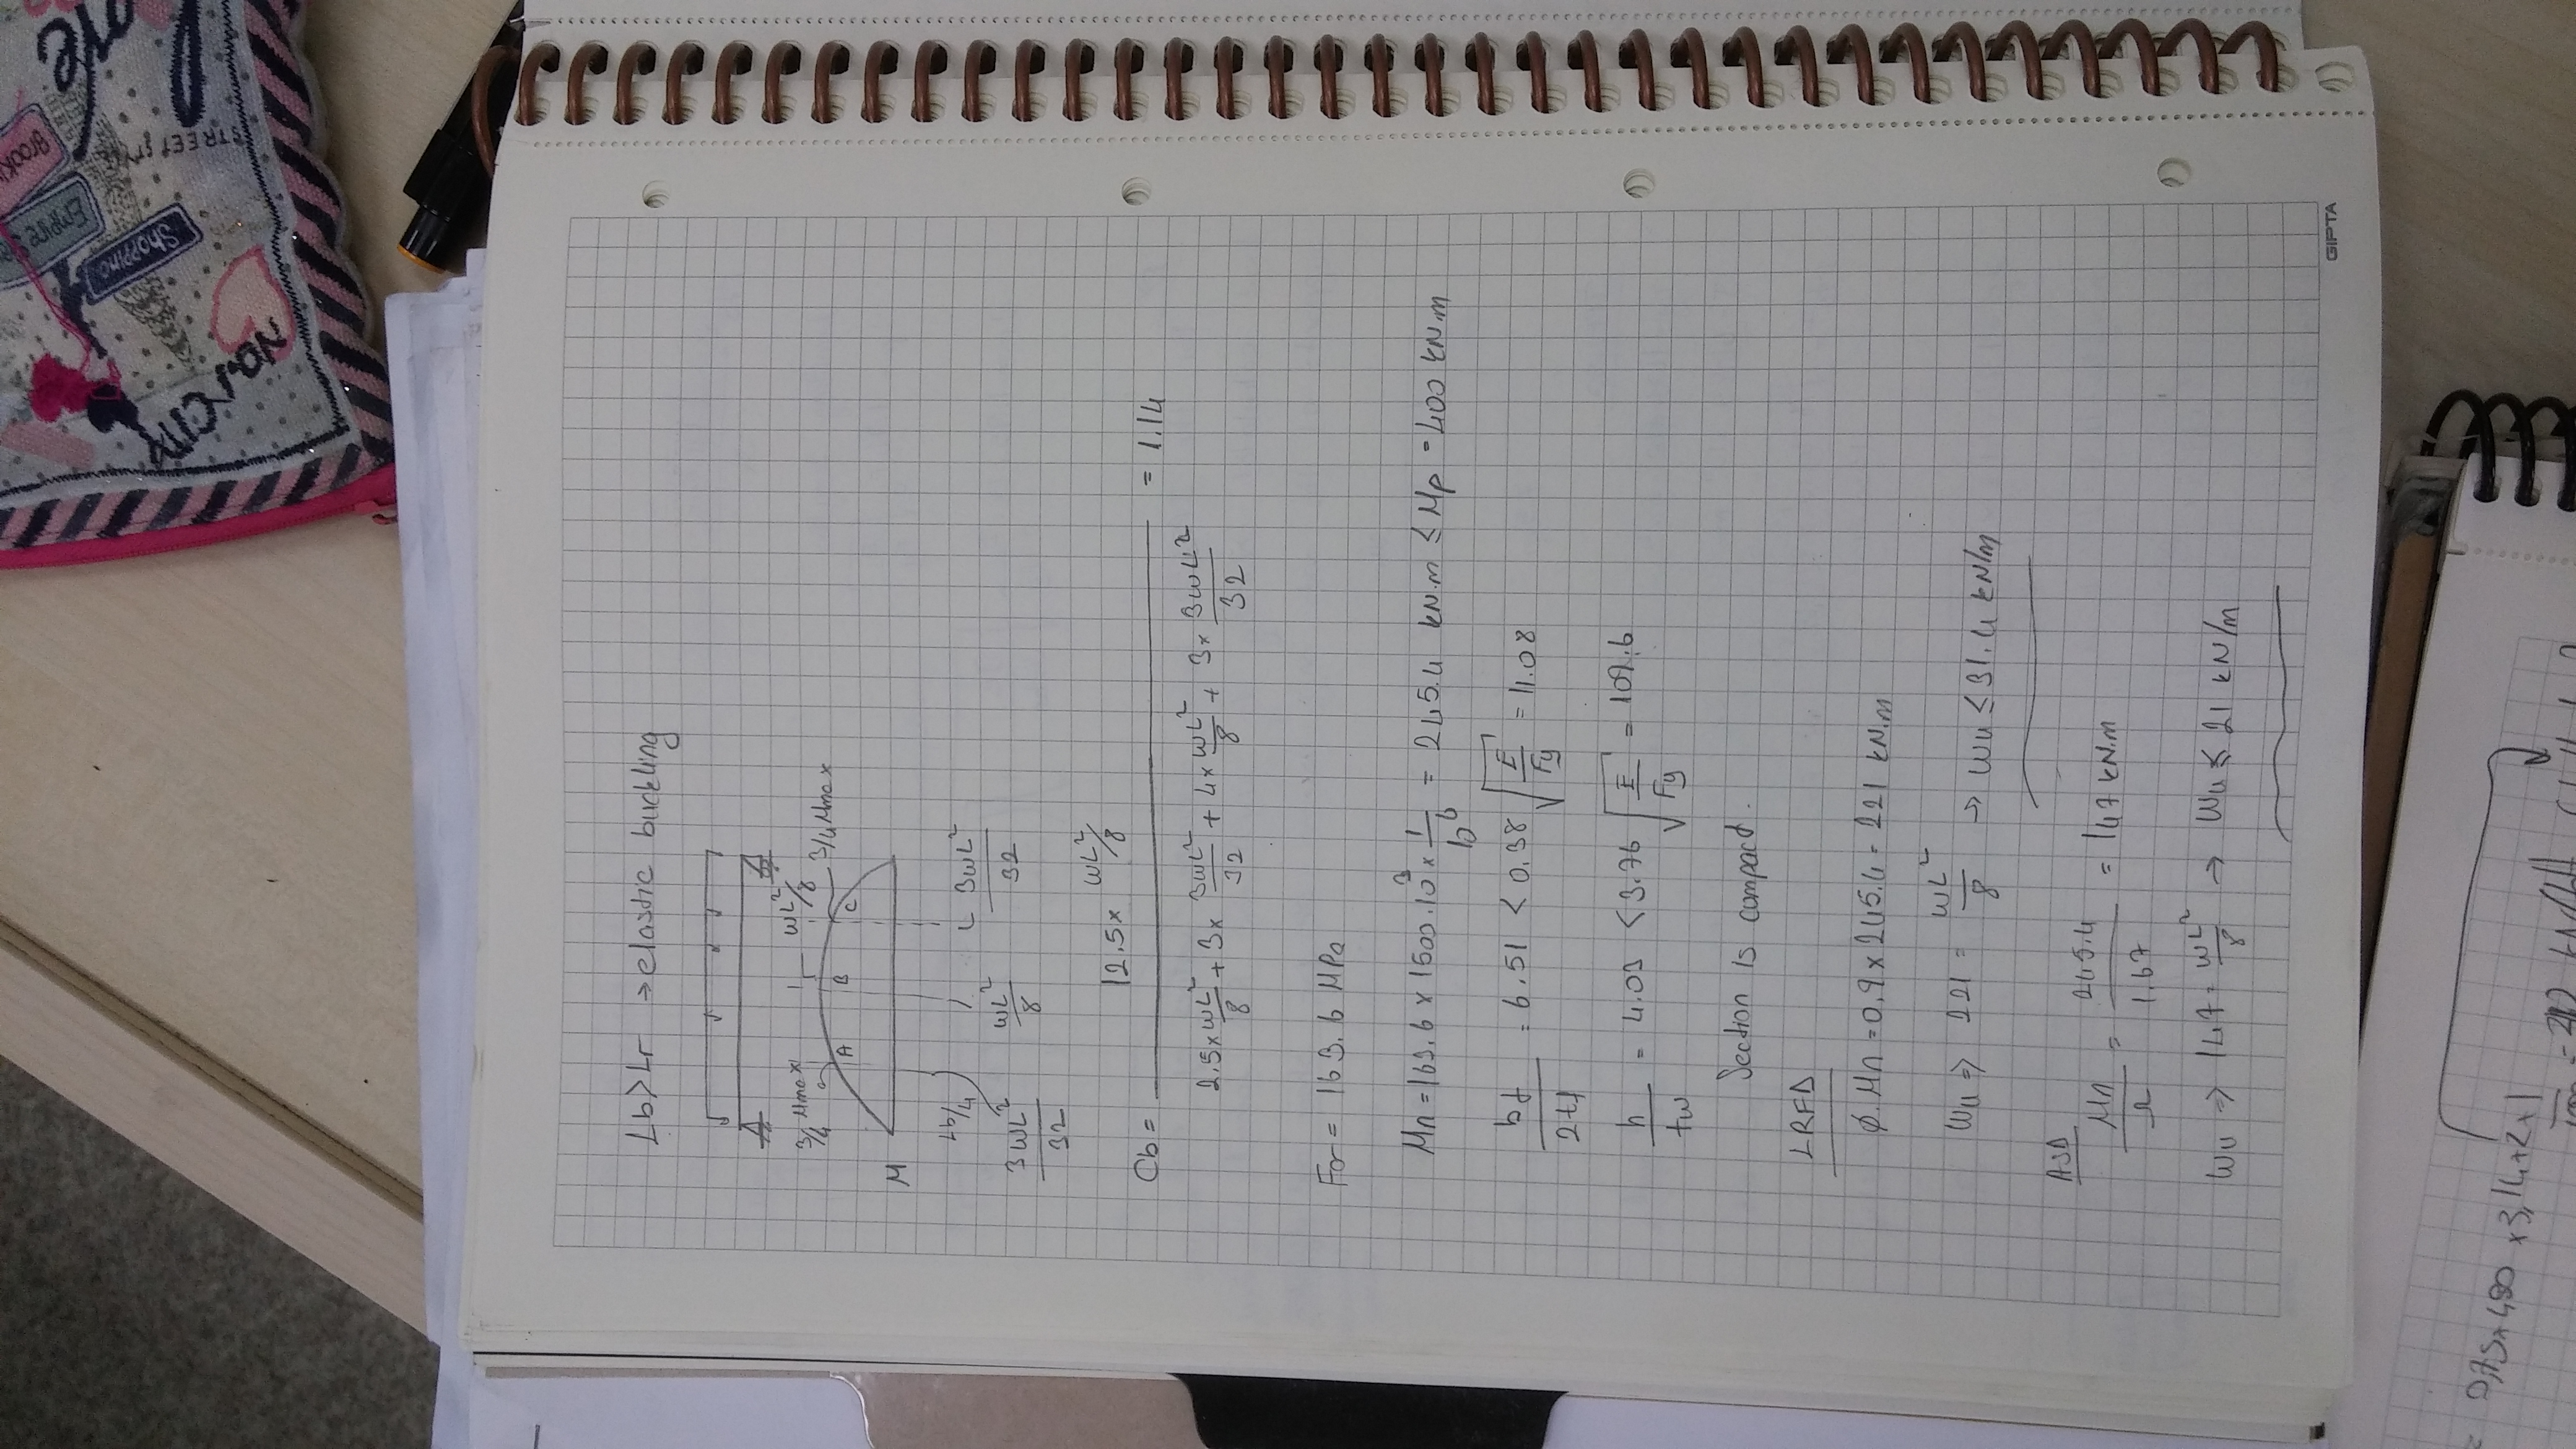 Shopping
Empire
STREET
Lb>Lr → elastic buckling
3/4 Mmax
wL²/8
3/4 Mmax
A B C
M
Lb/4
3wL²/32 wL²/8 3wL²/32
Cb = 12.5x wL²/8 / 2.5x wL²/8 + 3x 3wL²/32 + 4x wL²/8 + 3x 3wL²/32 = 1.14
Fcr = 163.6 MPa
Mn = 163.6 x 1500.10³ x 1/10⁶ = 245.4 kN.m ≤ Mp = 400 kN.m
bf/2tf = 6.51 < 0.38 √E/Fy = 11.08
h/tw = 4.03 < 3.76 √E/Fy = 109.6
Section is compact.
LRFD
ϕ.Mn = 0.9 x 245.4 = 221 kN.m
wu ⇒ 221 = wL²/8 → wu ≤ 31.4 kN/m
ASD
Mn/Ω = 245.4/1.67 = 147 kN.m
wu ⇒ 147 = wL²/8 → wu ≤ 21 kN/m
GIPTA
= 0,75x480 x3,14x2x1